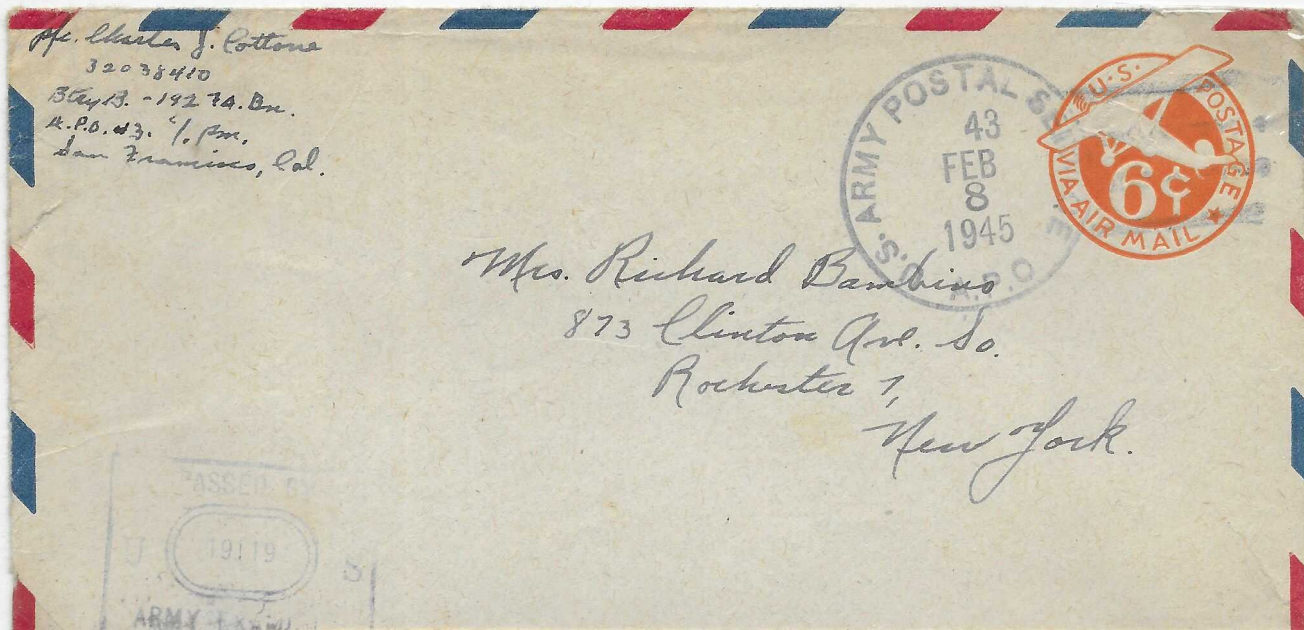 Pfc. Charles J. Cottone
32038410
Btry B. - 192 F.A. Bn.
A.P.O. 43. c/o P.m.
San Francisco, Cal.
U.S. ARMY POSTAL SE E
A.P.O.
43
FEB
8
1945
U.S. POSTAGE
6¢
VIA AIR MAIL
Mrs. Richard Bambino
873 Clinton Ave. So.
Rochester 7,
New York.
PASSED BY
U 19119 S
ARMY EXAMINER